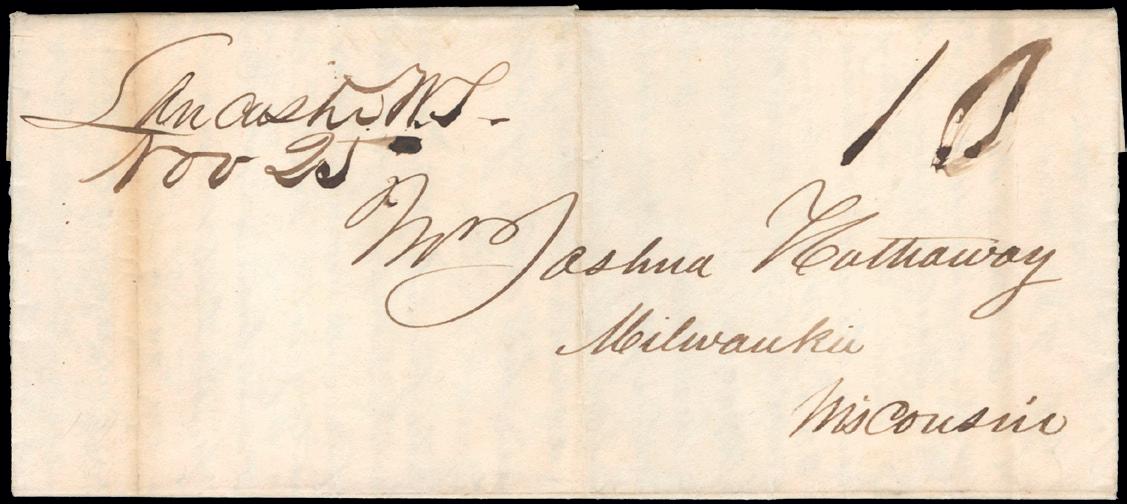 Lancaster W.T.
Nov 25
10
Mr Joshua Hathaway
Milwaukie
Wisconsin